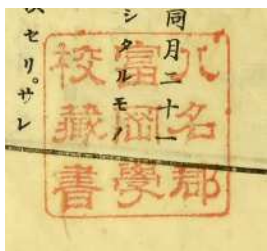 同月二十一
シタルモノ
セリ。サレ
八名郡
富岡學
校藏書